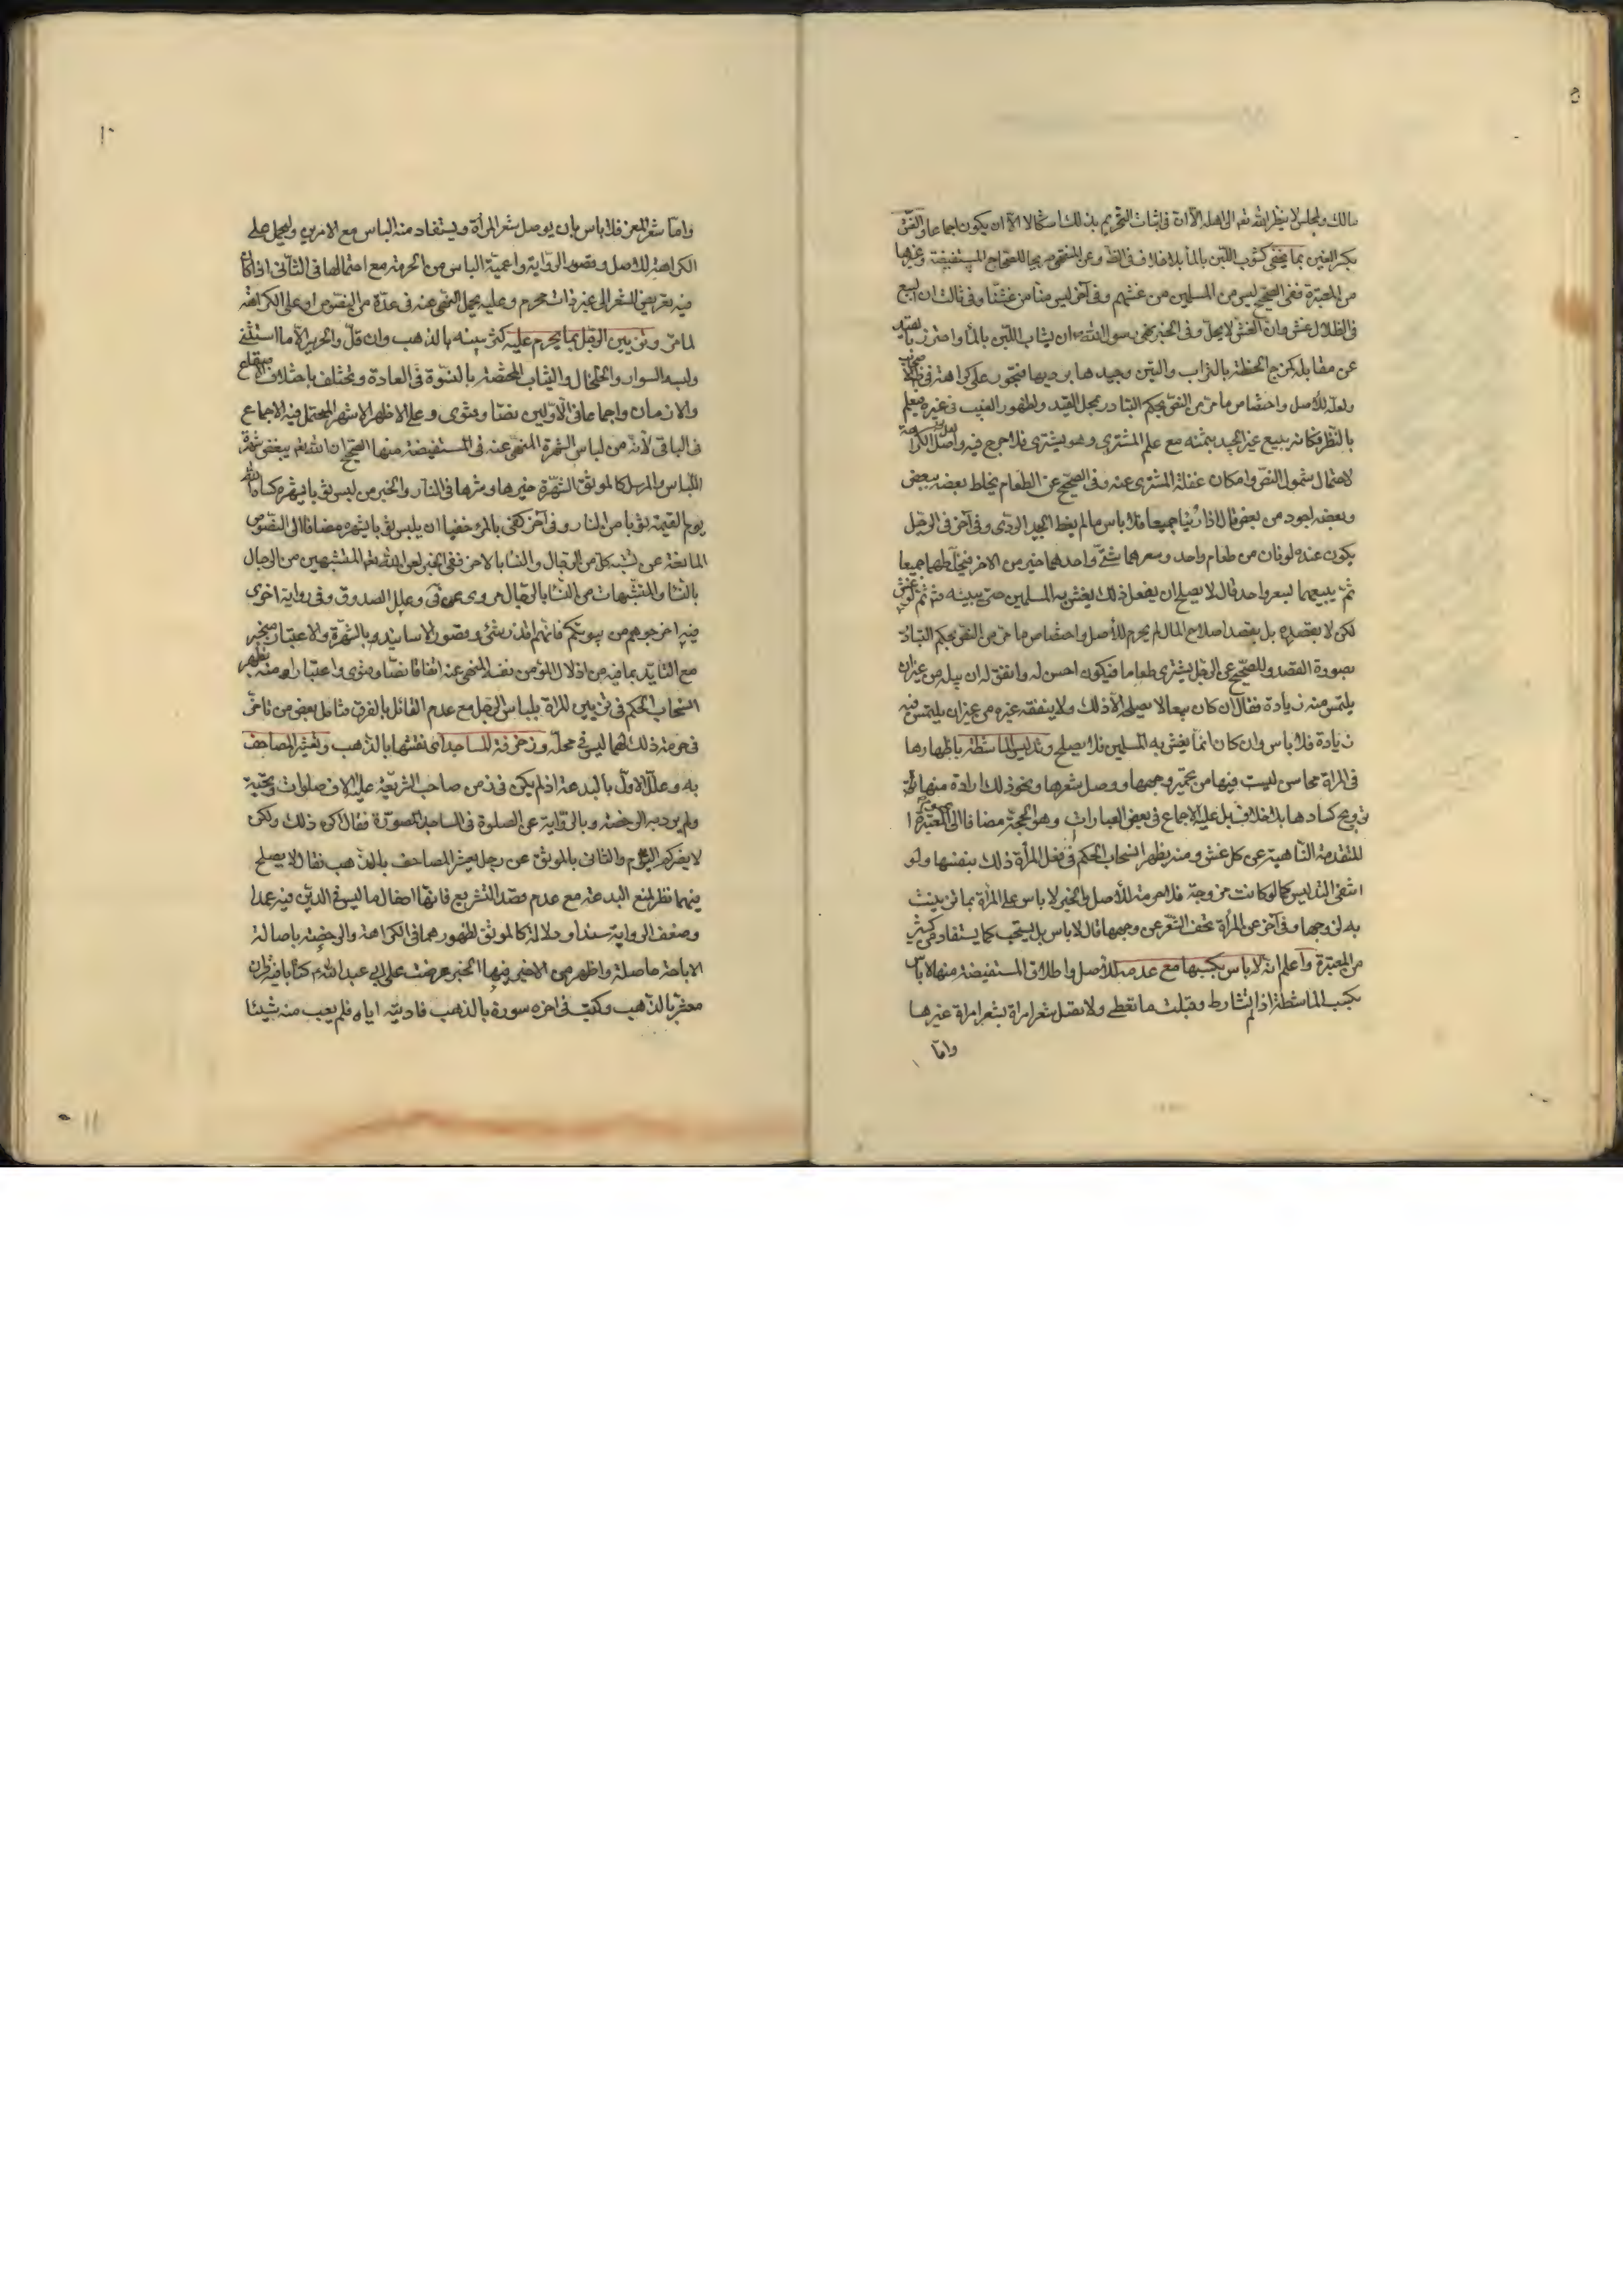 مالك ولمجلس لا ينظر الله تعه الى اهله الا ان فى اثبات التحريم بذلك اشكالا الا ان يكون اجماعا والغش
بكسر الغين بما يخفى كشوب اللبن بالماء بلا خلاف فى الظ وعن المنتهى صريحا للصحاح المستفيضة وغيرها
من المعتبرة ففى الصحيح ليس من المسلمين من غشهم وفى آخر ليس منا من غشنا وفى ثالث ان البيع
فى الظلال غش وان الغش لا يحل وفى الخبر نهى رسول الله ص ان يشاب اللبن بالماء واحترز بالقيد
عن مقابله كمزج الحنطة بالتراب والتبن وجيدها برديها فيجوز على كراهة فى ظ الاصحاب
ولعله للاصل واختصاص ما مر من النص بحكم التبادر بمحل القيد ولظهور العيب فى غيره فيعلم
بالنظر فكانه يبيع غير الجيد بثمنه مع علم المشترى وهو يشترى فلا حرج فيه واصل الكراهة
لاحتمال شمول النص وامكان غفلة المشترى عنه وفى الصحيح عن الطعام يخلط بعضه ببعض
وبعضه اجود من بعض قال اذا رئيا جميعا فلا باس ما لم يغط الجيد الردى وفى آخر فى الرجل
يكون عنده لونان من طعام واحد وسعرهما شتى واحدهما خير من الاخر فيخلطهما جميعا
ثم يبيعهما بسعر واحد قال لا يصلح ان يفعل ذلك يغش به المسلمين حتى يبينه ثم لو غش
لكن لا بقصده بل بقصد اصلاح المال لم يحرم للاصل واختصاص ما مر من النص بحكم التبادر
بصورة القصد وللصحيح عن الرجل يشترى طعاما فيكون احسن له وانفق له ان يبله من غير ان
يلتمس منه زيادة فقال ان كان بيعا لا يصلحه الا ذلك ولا ينفقه غيره من غير ان يلتمس فيه
زيادة فلا باس وان كان انما يغش به المسلمين فلا يصلح وتدليس الماشطة باظهارها
فى المراة محاسن ليست فيها من تحمير وجهها ووصل شعرها ونحو ذلك ارادة منها
ترويج كسادها بلا خلاف بل عليه الاجماع فى بعض العبارات وهو الحجة مضافا الى المعتبرة
المتقدمة الناهية عن كل غش ومنه يظهر انسحاب الحكم فى فعل المرأة ذلك بنفسها ولو
انتفى التدليس كما لو كانت مزوجة فلا حرمة للاصل والخبر لا باس على المرأة بما تزينت
به لزوجها وفى آخر عن المرأة تحف الشعر عن وجهها قال لا باس بل يستحب كما يستفاد من كثير
من المعتبرة واعلم انه لا باس بكسبها مع عدمه للاصل واطلاق المستفيضة منها لا باس
بكسب الماشطة اذا لم تشارط وقبلت ما تعطى ولا تصل شعر امراة بشعر امراة غيرها
واما
١٠
واما شعر المعز فلا باس بان يوصل بشعر المرأة ويستفاد منه الباس مع الامرين وليحمل على
الكراهة للاصل وقصور الرواية واعمية الباس من الحرمة مع احتمالها فى الثانى اذا كان
فيه تعريض الشعر الى غير ذات محرم وعليه يحمل النهى عنه فى عدة من النصوص او على الكراهة
لما مر وتزيين الرجل بما يحرم عليه كتزيينه بالذهب وان قل والحرير الا ما استثنى
ولبسه السوار والخلخال والثياب المختصة بالنسوة فى العادة ويختلف باختلاف الاصقاع
والازمان واجماعا فى الاولين نصا وفتوى وعلى الاظهر الاشهر المحتمل فيه الاجماع
فى الباقى لانه من لباس الشهرة المنهى عنه فى المستفيضة منها الصحيح ان الله تعه يبغض شهرة
اللباس والمرسل كالموثق الشهرة خيرها وشرها فى النار والخبر من لبس ثوبا يشهره كساه الله
يوم القيمة ثوبا من النار وفى آخر كفى بالمرء خزيا ان يلبس ثوبا يشهره مضافا الى النصوص
المانعة عن تشبه كل من الرجال والنساء بالاخر ففى الخبر لعن الله تعه المتشبهين من الرجال
بالنساء والمتشبهات من النساء بالرجال مروى عن فى وعلل الصدوق وفى رواية اخرى
فيه اخرجوهم من بيوتكم فانهم اقذر شئ وقصور الاسانيد بالشهرة والاعتبار منجبر
مع التايد بما فيه من اذلال المؤمن نفسه المنهى عنه اتفاقا نصا وفتوى واعتبارا ومنه يظهر
انسحاب الحكم فى تزيين المراة بلباس الرجل مع عدم القائل بالفرق فتامل بعض من تاخر
فى حرمة ذلك لهما ليس فى محله وزخرفة المساجد اى نقشها بالذهب وتعشير المصاحف
به وعلل الاول بالبدعة اذ لم يكن فى زمن صاحب الشريعة عليه الاف صلوات وتحية
ولم يرد به الرخصة وبالرواية عن الصلوة فى المساجد المصورة فقال اكره ذلك ولكن
لا يضركم اليوم والثانى بالموثق عن رجل يعشر المصاحف بالذهب فقال لا يصلح
فيهما نظر لمنع البدعة مع عدم قصد التشريع فانها ادخال ما ليس فى الدين فيه عمدا
وضعف الرواية سندا ودلالة كالموثق لظهورهما فى الكراهة والرخصة باصالة
الاباحة حاصلة واظهر من الاخير فيها الخبر عرضت على ابى عبد الله ع كتابا فيه قران
معشر بالذهب وكتب فى اخره سورة بالذهب فاريته اياه فلم يعب منه شيئا